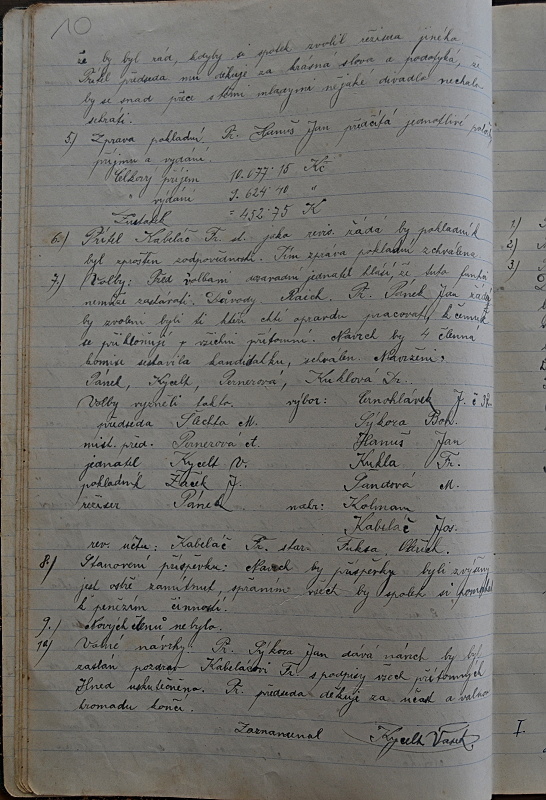 10
že by byl rád, kdyby si spolek zvolil režisera jiného
Přítel předseda mu děkuje za krasná slova a podotýká, že
by se snad přece s těmi mladými nějaké divadlo nechalo
sehrati.
5.) Zprava pokladní Př. Hanuš Jan předčítá jednotlivé
příjmu a vydání.
Celkový příjem 10.677.15 Kč
" vydání "
Zustatek = 452.75 K
6.) Přítel Kabeláč Fr. st. jako revis. žádá by pokladník
byl zprostěn zodpovednosti. Tím zprava pokladní schválena
7.) Volby: Před volbami dosavadní jednatel hlásí, že tuto funkci
nemůže zastavati. Důvody Př. Pánek Jan žádá
by zvoleni byli ti kteří chtí opravdu pracovati, k čemuž
se přikloňují všichni přítomní. Navrch by 4 členna
komise sestavila kandidatku, schválen. Navrženi:
Pánek, Kycelt, Pernerová, Kuklová
Volby vyzněli takto. výbor: Černohlávek J.
předseda Šlechta M. Sýkora Boh.
míst. před. Pernerová A. Hanuš Jan
jednatel Kycelt V. Kukla Fr.
pokladník Žáček J. Pandová M.
režiser Pánek nahr: Kolman
Kabeláč Jos.
rev. účtu: Kabeláč Fr. star. Fuksa Oldřich.
8.) Stanovení příspěvku: Navrch by příspěvky byli zvýšeny
jest ostře zamítnut, spřáním všech by spolek si pomohl
k penězům činností.
9.) Nových členů nebylo.
10) Volné návrhy. Př. Sýkora Jan dává návrch by byl
zaslán pozdrav Kabeláčovi Fr. s podpisy všech přítomných
Ihned uskutečněno. Př. předseda děkuje za účast a valnou
hromadu končí.
Zaznamenal Kycelt Vašek
1)
2)
3)
I.